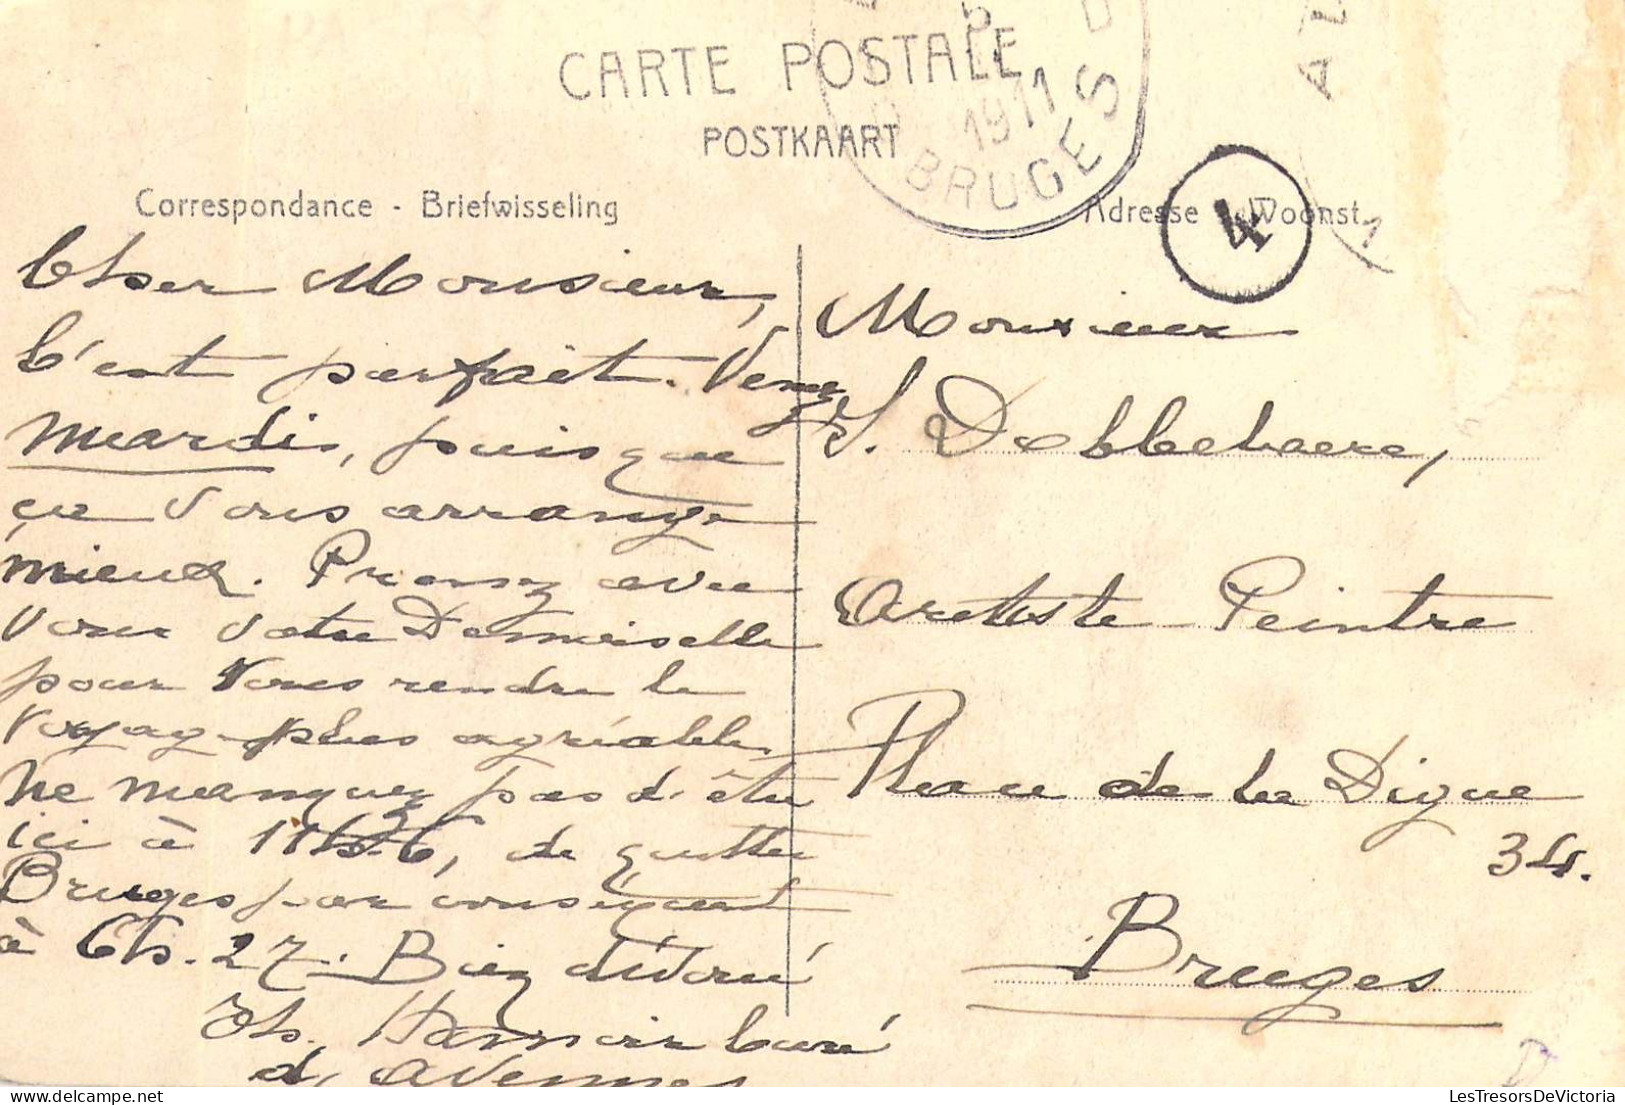 CARTE POSTALE
POSTKAART
1911
BRUGES
Correspondance - Briefwisseling
Adresse - Woonst
4
Cher Monsieur,
C'est parfait. Venez
mardi, puisque
ça vous arrange
mieux. Prenez avec
vous votre Demoiselle
pour vous rendre le
voyage plus agréable.
Ne manquez pas d'être
ici à 11h.6, de quitter
Bruges par conséquent
à 6h.27. Bien dévoué
Th. Hannoir Curé
d'Avennes
Monsieur
S. Debbelaere,
Artiste Peintre
Place de la Digue
34.
Bruges
LesTresorsDeVictoria